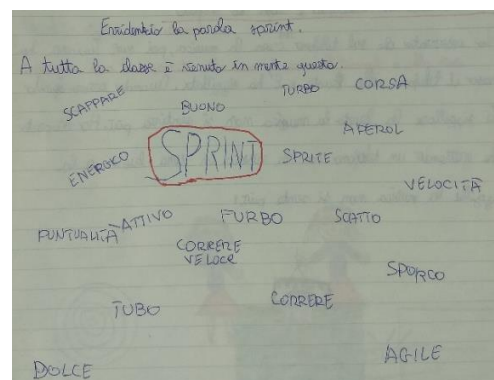 Evvidentio la parola sprint.
A tutta la classe è venuto in mente questo.
SCAPPARE
BUONO
TURBO
CORSA
ENERGICO
SPRINT
SPRITE
APEROL
VELOCITÀ
PUNTUALITÀ
ATTIVO
FURBO
SCATTO
CORRERE
VELOCE
SPORCO
TUBO
CORRERE
DOLCE
AGILE